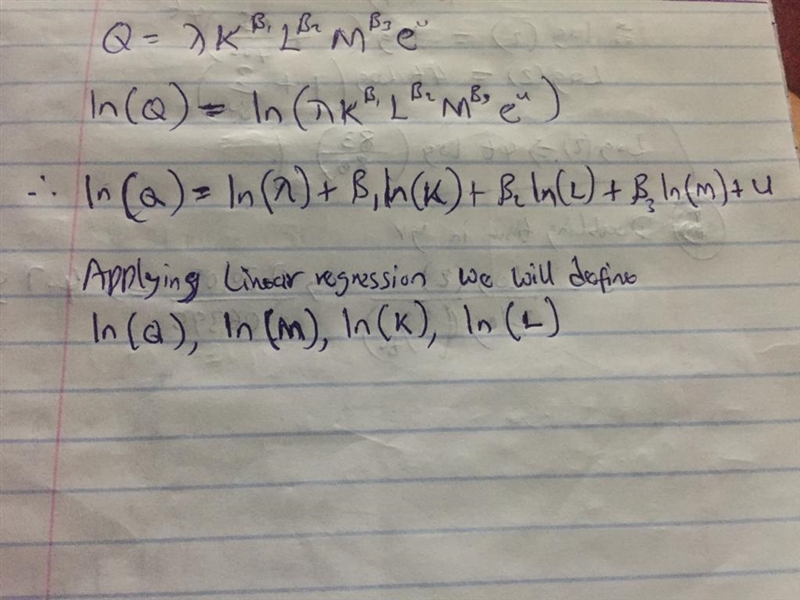 Q = λK^β₁ L^β₂ M^β₃ e^u
ln(Q) = ln(λK^β₁ L^β₂ M^β₃ e^u)
∴ ln(Q) = ln(λ) + β₁ln(K) + β₂ ln(L) + β₃ ln(M) + u
Applying Linear regression we will define
ln(Q), ln(M), ln(K), ln(L)